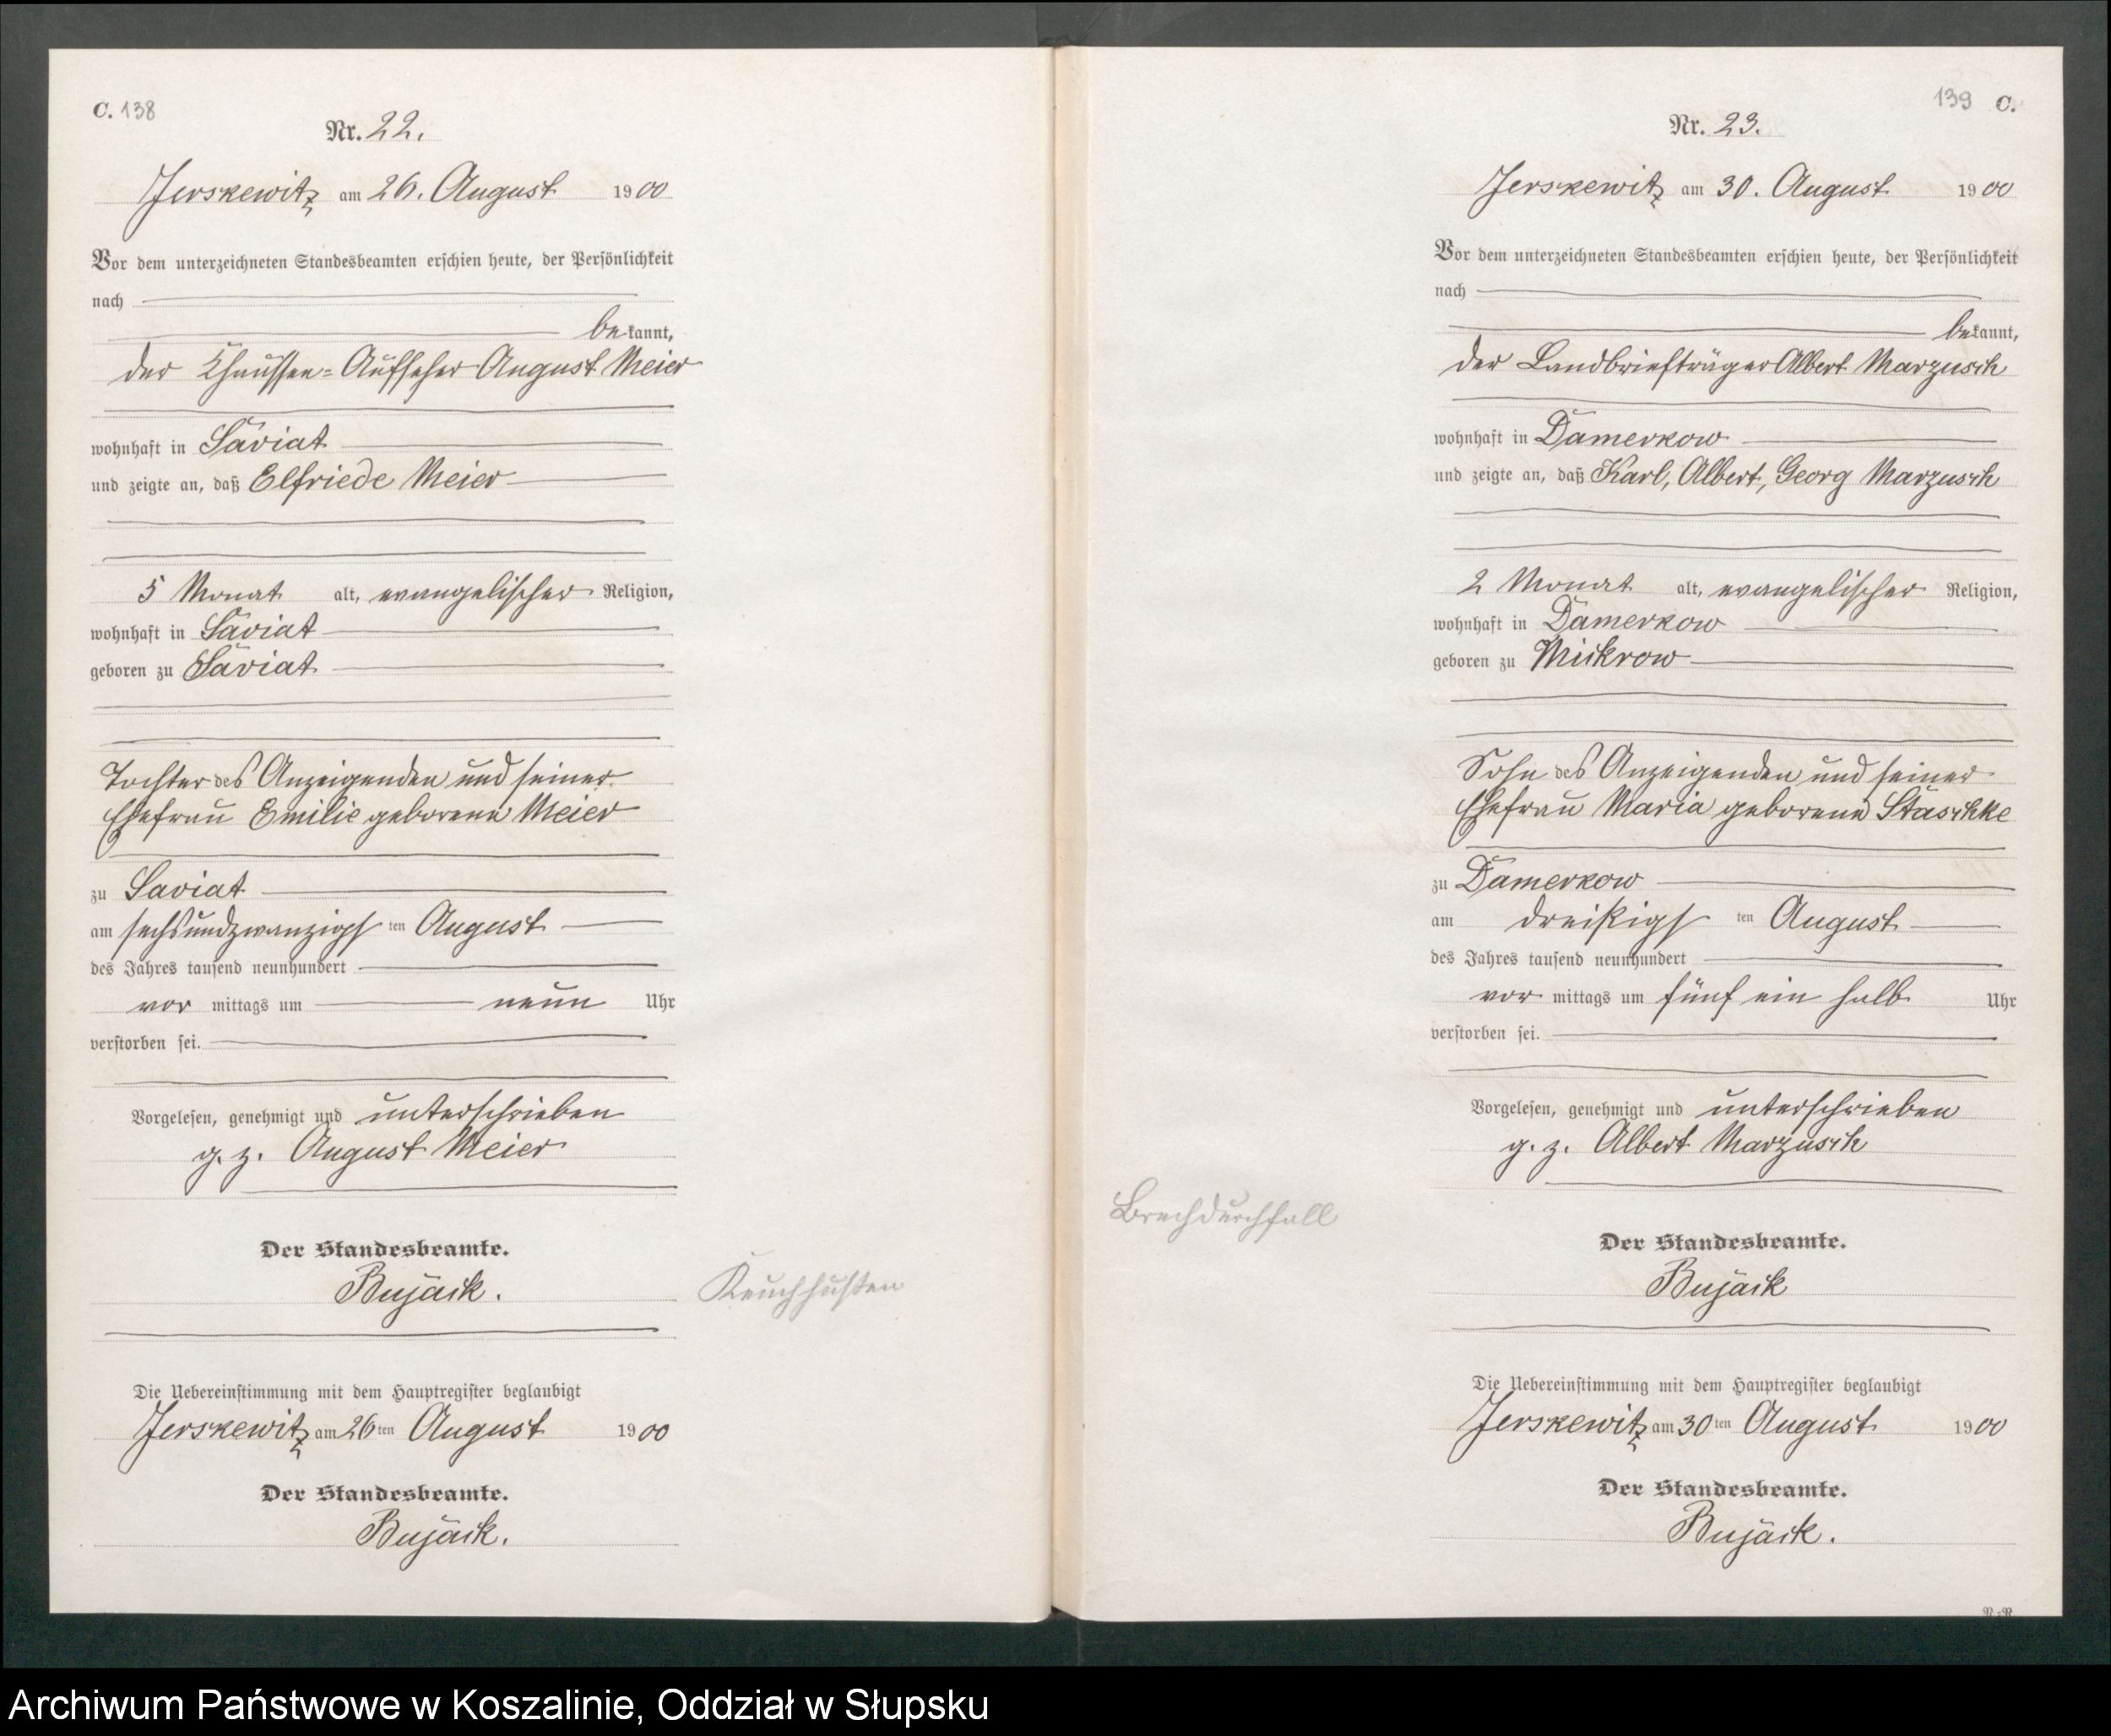 C. 138
Nr. 22.
Jerskewitz am 26. August 1900
Vor dem unterzeichneten Standesbeamten erschien heute, der Persönlichkeit
nach
bekannt,
der Chaussee-Aufseher August Meier
wohnhaft in Saviat
und zeigte an, daß Elfriede Meier
5 Monat alt, evangelischer Religion,
wohnhaft in Saviat
geboren zu Saviat
Tochter des Anzeigenden und seiner
Ehefrau Emilie geborene Meier
zu Saviat
am sechsundzwanzigsten August
des Jahres tausend neunhundert
vor mittags um neun Uhr
verstorben sei.
Vorgelesen, genehmigt und unterschrieben
g. z. August Meier
Der Standesbeamte.
Bujack.
Keuchhusten
Die Uebereinstimmung mit dem Hauptregister beglaubigt
Jerskewitz am 26ten August 1900
Der Standesbeamte.
Bujack.
139 C.
Nr. 23.
Jerskewitz am 30. August 1900
Vor dem unterzeichneten Standesbeamten erschien heute, der Persönlichkeit
nach
bekannt,
der Landbriefträger Albert Marzusch
wohnhaft in Damerkow
und zeigte an, daß Karl, Albert, Georg Marzusch
2 Monat alt, evangelischer Religion,
wohnhaft in Damerkow
geboren zu Mickrow
Sohn des Anzeigenden und seiner
Ehefrau Maria geborene Staschke
zu Damerkow
am dreißigsten August
des Jahres tausend neunhundert
vor mittags um fünf ein halb Uhr
verstorben sei.
Vorgelesen, genehmigt und unterschrieben
g. z. Albert Marzusch
Brechdurchfall
Der Standesbeamte.
Bujack
Die Uebereinstimmung mit dem Hauptregister beglaubigt
Jerskewitz am 30ten August 1900
Der Standesbeamte.
Bujack.
Archiwum Państwowe w Koszalinie, Oddział w Słupsku